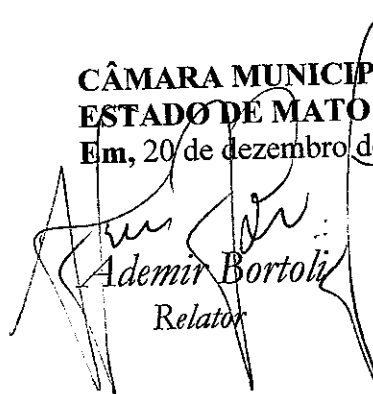 CÂMARA MUNICIP
ESTADO DE MATO
Em, 20 de dezembro de
Ademir Bortoli
Relator